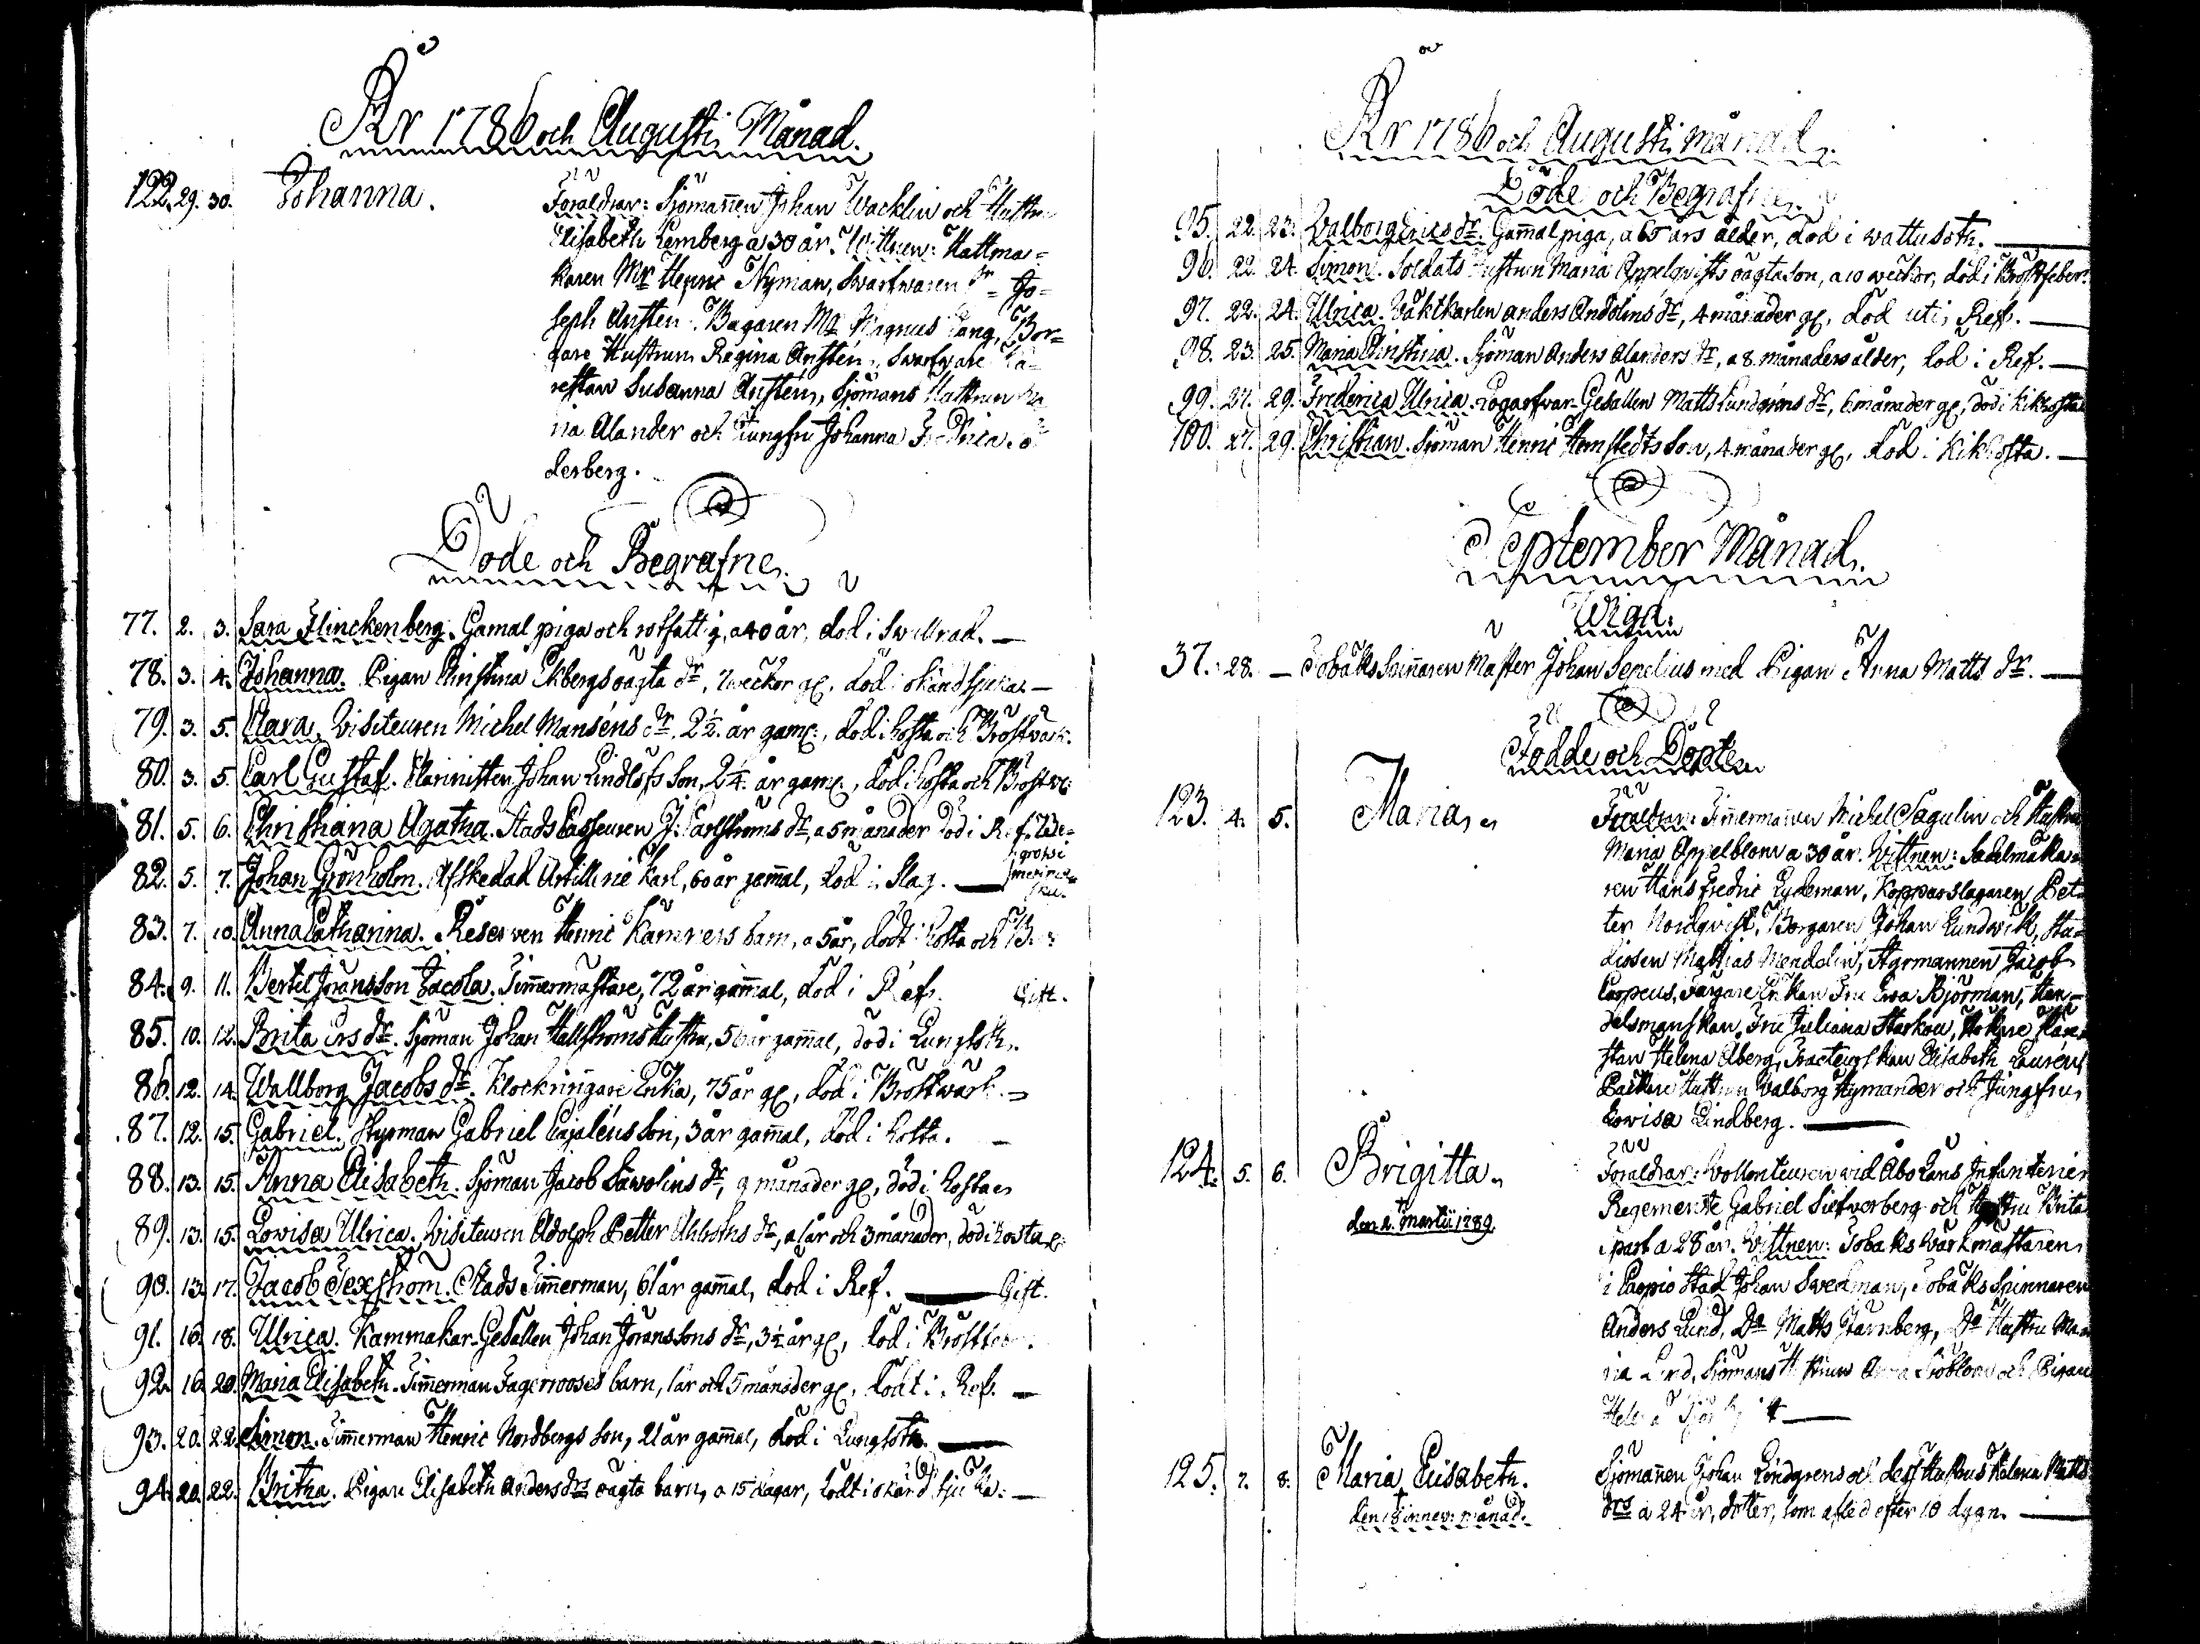 År 1786 och Augusti Månad.
122. 29. 30. Johanna. Föräldrar: Sjömannen Johan Wacklin och Hustru
Elisabeth Lemberg a 30 år. Wittnen: Hattma=
karen Mr Henric Nyman, Swarfwaren Jo=
seph Anstén. Bagaren Mr Magnus Tang, Bor=
gare Hustrun Regina Anstén, Swarfvare
restan Susanna Anstén, Sjömans Hustrun Ma
ria Alander och Jungfru Johanna
derberg.
Döde och Begrafne.
77. 2. 3. Sara Flinckenberg. Gamal piga och rotfattig, a 40 år, död i Swullnad.
78. 3. 4. Johanna. Pigan Christina Ekbergs oägta dr, 7 weckor gl, död i okänd sjukdo
79. 3. 5. Clara. Visiteuren Michel Manséns dr, 2½ år gaml., död i hosta och Bröstwärk.
80. 3. 5. Carl Gustaf. Klarinisten Johan Lindlöfs Son, 2¼ år gaml., död i hosta och Bröstw:
81. 5. 6. Christiana Agatha. Stads Casseuren J. Carlströms dr, a 5 månader död i Ref.
82. 5. 7. Johan Grönholm. Afskedad Artillerie Karl, 60 år gammal, död i Slag.
83. 7. 10. Anna Catharina. Henric Kamrers barn, a 5 år, dödt i hosta och Br:
84. 9. 11. Bertil Göransson Jacola. Timmermästare, 72 år gammal, död i Ref. Gift.
85. 10. 12. Brita Ersdr. Sjöman Johan Hallströms Hustru, 56 år gammal, död i Lungsot.
86. 12. 14. Wallborg Jacobsdr. Klockringare Enka, 75 år gl, död i Bröstwärk.
87. 12. 15. Gabriel. Styrman Gabriel Cajaléns Son, 3 år gammal, död i hosta.
88. 13. 15. Anna Elisabeth. Sjöman Jacob Sawolins dr, 9 månader gl, död i hosta
89. 13. 15. Lowisa Ulrica. Visiteuren Adolph Petter Ahlboms dr, a 1 år och 3 månader, död i hosta
90. 13. 17. Jacob Texström. Stads Timmerman, 61 år gammal, död i Ref. Gift.
91. 16. 18. Ulrica. Kammakar-Gesällen Johan Göranssons dr, 3½ år gl, död i Bröstfeb.
92. 16. 20. Maria Elisabeth. Timmerman Fagerrooses barn, 1 år och 5 månader gl, dödt i Ref.
93. 20. 22. Simon. Timmerman Henric Nordbergs Son, 21 år gammal, död i Lungsot.
94. 20. 22. Britha. Pigan Elisabeth Andersdrs oägta barn, a 15 dagar, dödt i okänd sjukd:
År 1786 och Augusti månad.
Döde och Begrafne.
95. 22. 23. Walborg Ericsdr. Gammal piga, a 65 års ålder, död i wattusot.
96. 22. 24. Simon. Soldats Hustrun Maria Appelqvists oägta Son, a 10 weckor, död i Bröstfeber.
97. 22. 24. Ulrica. Wäktkarlen Anders Andolins dr, 4 månader gl, död uti Ref.
98. 23. 25. Maria Christina. Sjöman Anders Alanders dr, a 8 månaders ålder, död i Ref.
99. 27. 29. Frederica Ulrica. Logarfvar-Gesällen Matts Lundgréns dr, 6 månader gl, död i Kikhosta
100. 27. 29. Christian. Sjöman Henric Hemstedts Son, 4 månader gl, död i Kikhosta.
September Månad.
Wigd.
37. 28. Tobaks Spinnaren Mäster Johan Sepelius med Pigan Anna Mattsdr.
Födde och Döpte
123. 4. 5. Maria. Föräldrar: Timmermannen Michel Sagulin och Hustru
Maria Appelblom a 30 år. Wittnen: Sadelmaka=
ren Hans Fredric Lydeman, Kopparslagaren Pet=
ter Nordqvist, Borgaren Johan Lundwik, Stu=
diosen Mathias Mendolin, Styrmannen Jacob
Carpeus, Färgare Enkan Fru Ewa Björman, Han=
delsmanskan Fru Juliana Starkou,
stan Helena Åberg, Tracteurskan Elisabeth Laurén,
Hustrun Valborg Nymander och Jungfru
Lowisa Lindberg.
124. 5. 6. Brigitta. Föräldrar: Wollonteuren wid Åbo Läns Infanterie
den 2. Martii 1789. Regemente Gabriel Siefverberg och Hustru Brita
a 28 år. Wittnen: Tobaks Wärkmästaren
i Stad Johan Swedman, Tobaks Spinnaren
Anders Lund, Do Matts Stärnberg, Do Hustru Ma
ria Lund, Sjömans Hustrun Anna Sjöblom och Pigan
125. 7. 8. Maria Elisabeth. Sjömannen Johan Löndgrens och dess Hustrus Helena Matts
den 18 innew: månad. drs a 24 år, dotter, som afled efter 10 dygn.